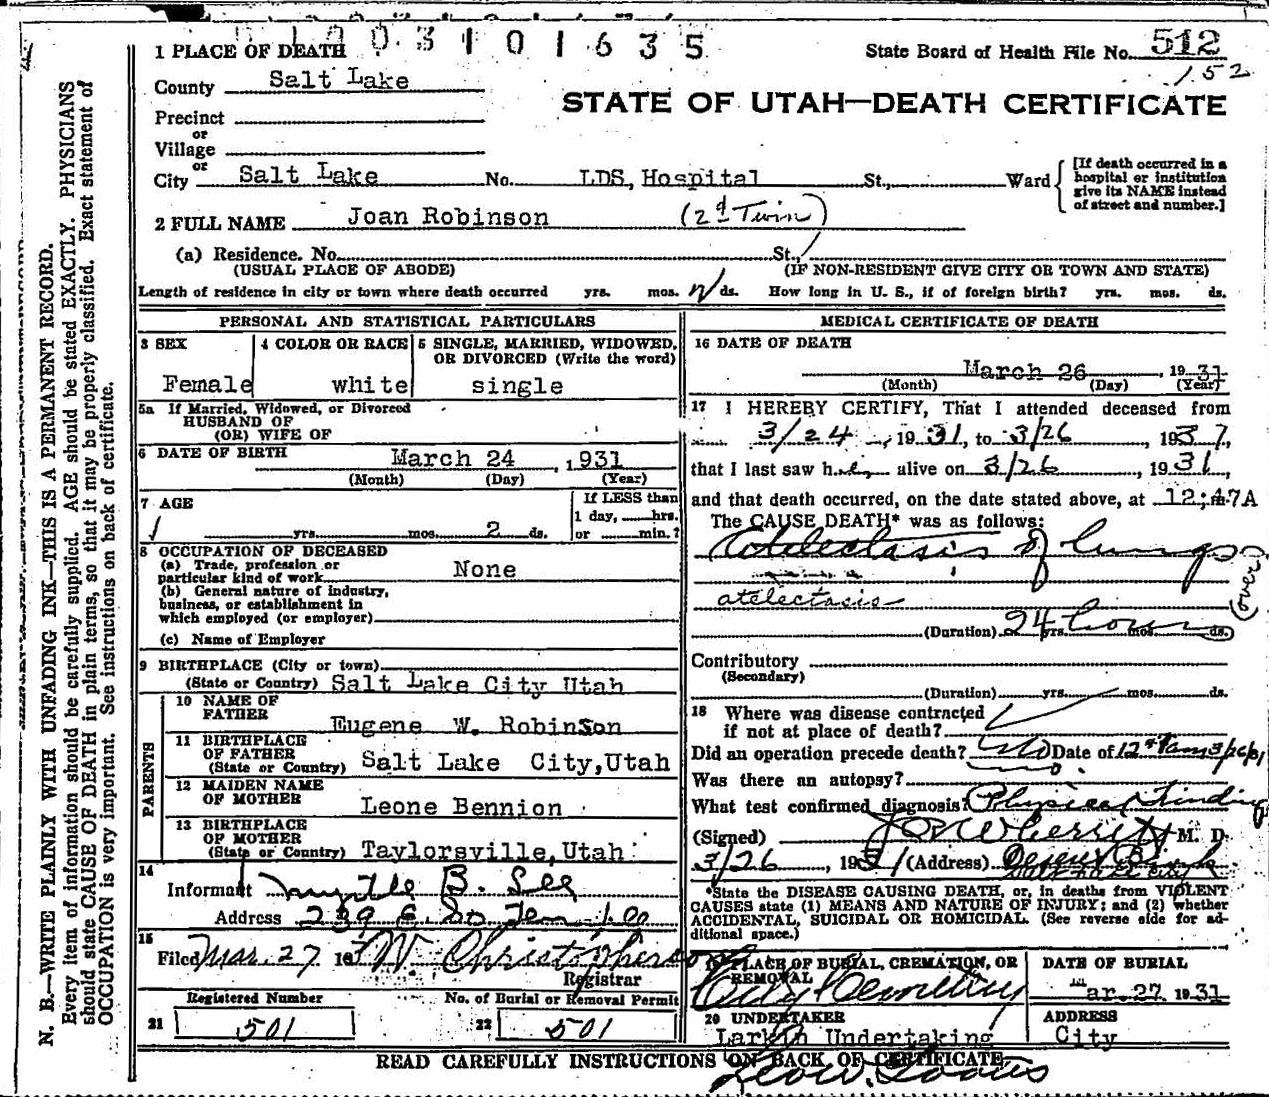 1003101635
1 PLACE OF DEATH
State Board of Health File No. 512
152
County Salt Lake
STATE OF UTAH—DEATH CERTIFICATE
Precinct
or
Village
or
City Salt Lake No. LDS, Hospital St., Ward
[If death occurred in a hospital or institution give its NAME instead of street and number.]
2 FULL NAME Joan Robinson (2d Twin)
(a) Residence. No. St.,
(USUAL PLACE OF ABODE) (IF NON-RESIDENT GIVE CITY OR TOWN AND STATE)
Length of residence in city or town where death occurred yrs. mos. ds. How long in U. S., if of foreign birth? yrs. mos. ds.
PERSONAL AND STATISTICAL PARTICULARS
3 SEX
Female
4 COLOR OR RACE
white
5 SINGLE, MARRIED, WIDOWED, OR DIVORCED (Write the word)
single
5a If Married, Widowed, or Divorced
HUSBAND OF
(OR) WIFE OF
6 DATE OF BIRTH
March 24, 1931
(Month) (Day) (Year)
7 AGE
yrs. mos. 2 ds.
If LESS than
1 day, hrs.
or min.?
8 OCCUPATION OF DECEASED
(a) Trade, profession or
particular kind of work None
(b) General nature of industry,
business, or establishment in
which employed (or employer)
(c) Name of Employer
9 BIRTHPLACE (City or town)
(State or Country) Salt Lake City Utah
PARENTS
10 NAME OF
FATHER Eugene W. Robinson
11 BIRTHPLACE
OF FATHER
(State or Country) Salt Lake City, Utah
12 MAIDEN NAME
OF MOTHER Leone Bennion
13 BIRTHPLACE
OF MOTHER
(State or Country) Taylorsville, Utah
14
Informant Myrtle B. Lee
Address 239 E. So Tem
15
Filed Mar. 27 W Christopherson
Registrar
Registered Number
21 501
No. of Burial or Removal Permit
22 501
MEDICAL CERTIFICATE OF DEATH
16 DATE OF DEATH
March 26, 1931
(Month) (Day) (Year)
17 I HEREBY CERTIFY, That I attended deceased from
3/24, 1931, to 3/26, 1931,
that I last saw her alive on 3/26, 1931
and that death occurred, on the date stated above, at 12:47A
The CAUSE DEATH* was as follows:
Atelectasis of lungs
atelectasis
(over)
(Duration) 24 hours yrs. mos. ds.
Contributory
(Secondary)
(Duration) yrs. mos. ds.
18 Where was disease contracted
if not at place of death?
Did an operation precede death? No Date of
Was there an autopsy? no.
What test confirmed diagnosis? Physical Findings
(Signed) M. D.
3/26, 1931 (Address) Deseret Bank
Salt Lake City
*State the DISEASE CAUSING DEATH, or, in deaths from VIOLENT
CAUSES state (1) MEANS AND NATURE OF INJURY; and (2) whether
ACCIDENTAL, SUICIDAL OR HOMICIDAL. (See reverse side for ad-
ditional space.)
19 PLACE OF BURIAL, CREMATION, OR
REMOVAL
City Cemetery
DATE OF BURIAL
Mar. 27 1931
20 UNDERTAKER
Larkin Undertaking
ADDRESS
City
READ CAREFULLY INSTRUCTIONS ON BACK OF CERTIFICATE
N. B.—WRITE PLAINLY WITH UNFADING INK—THIS IS A PERMANENT RECORD.
Every item of information should be carefully supplied. AGE should be stated EXACTLY. PHYSICIANS
should state CAUSE OF DEATH in plain terms, so that it may be properly classified. Exact statement of
OCCUPATION is very important. See instructions on back of certificate.